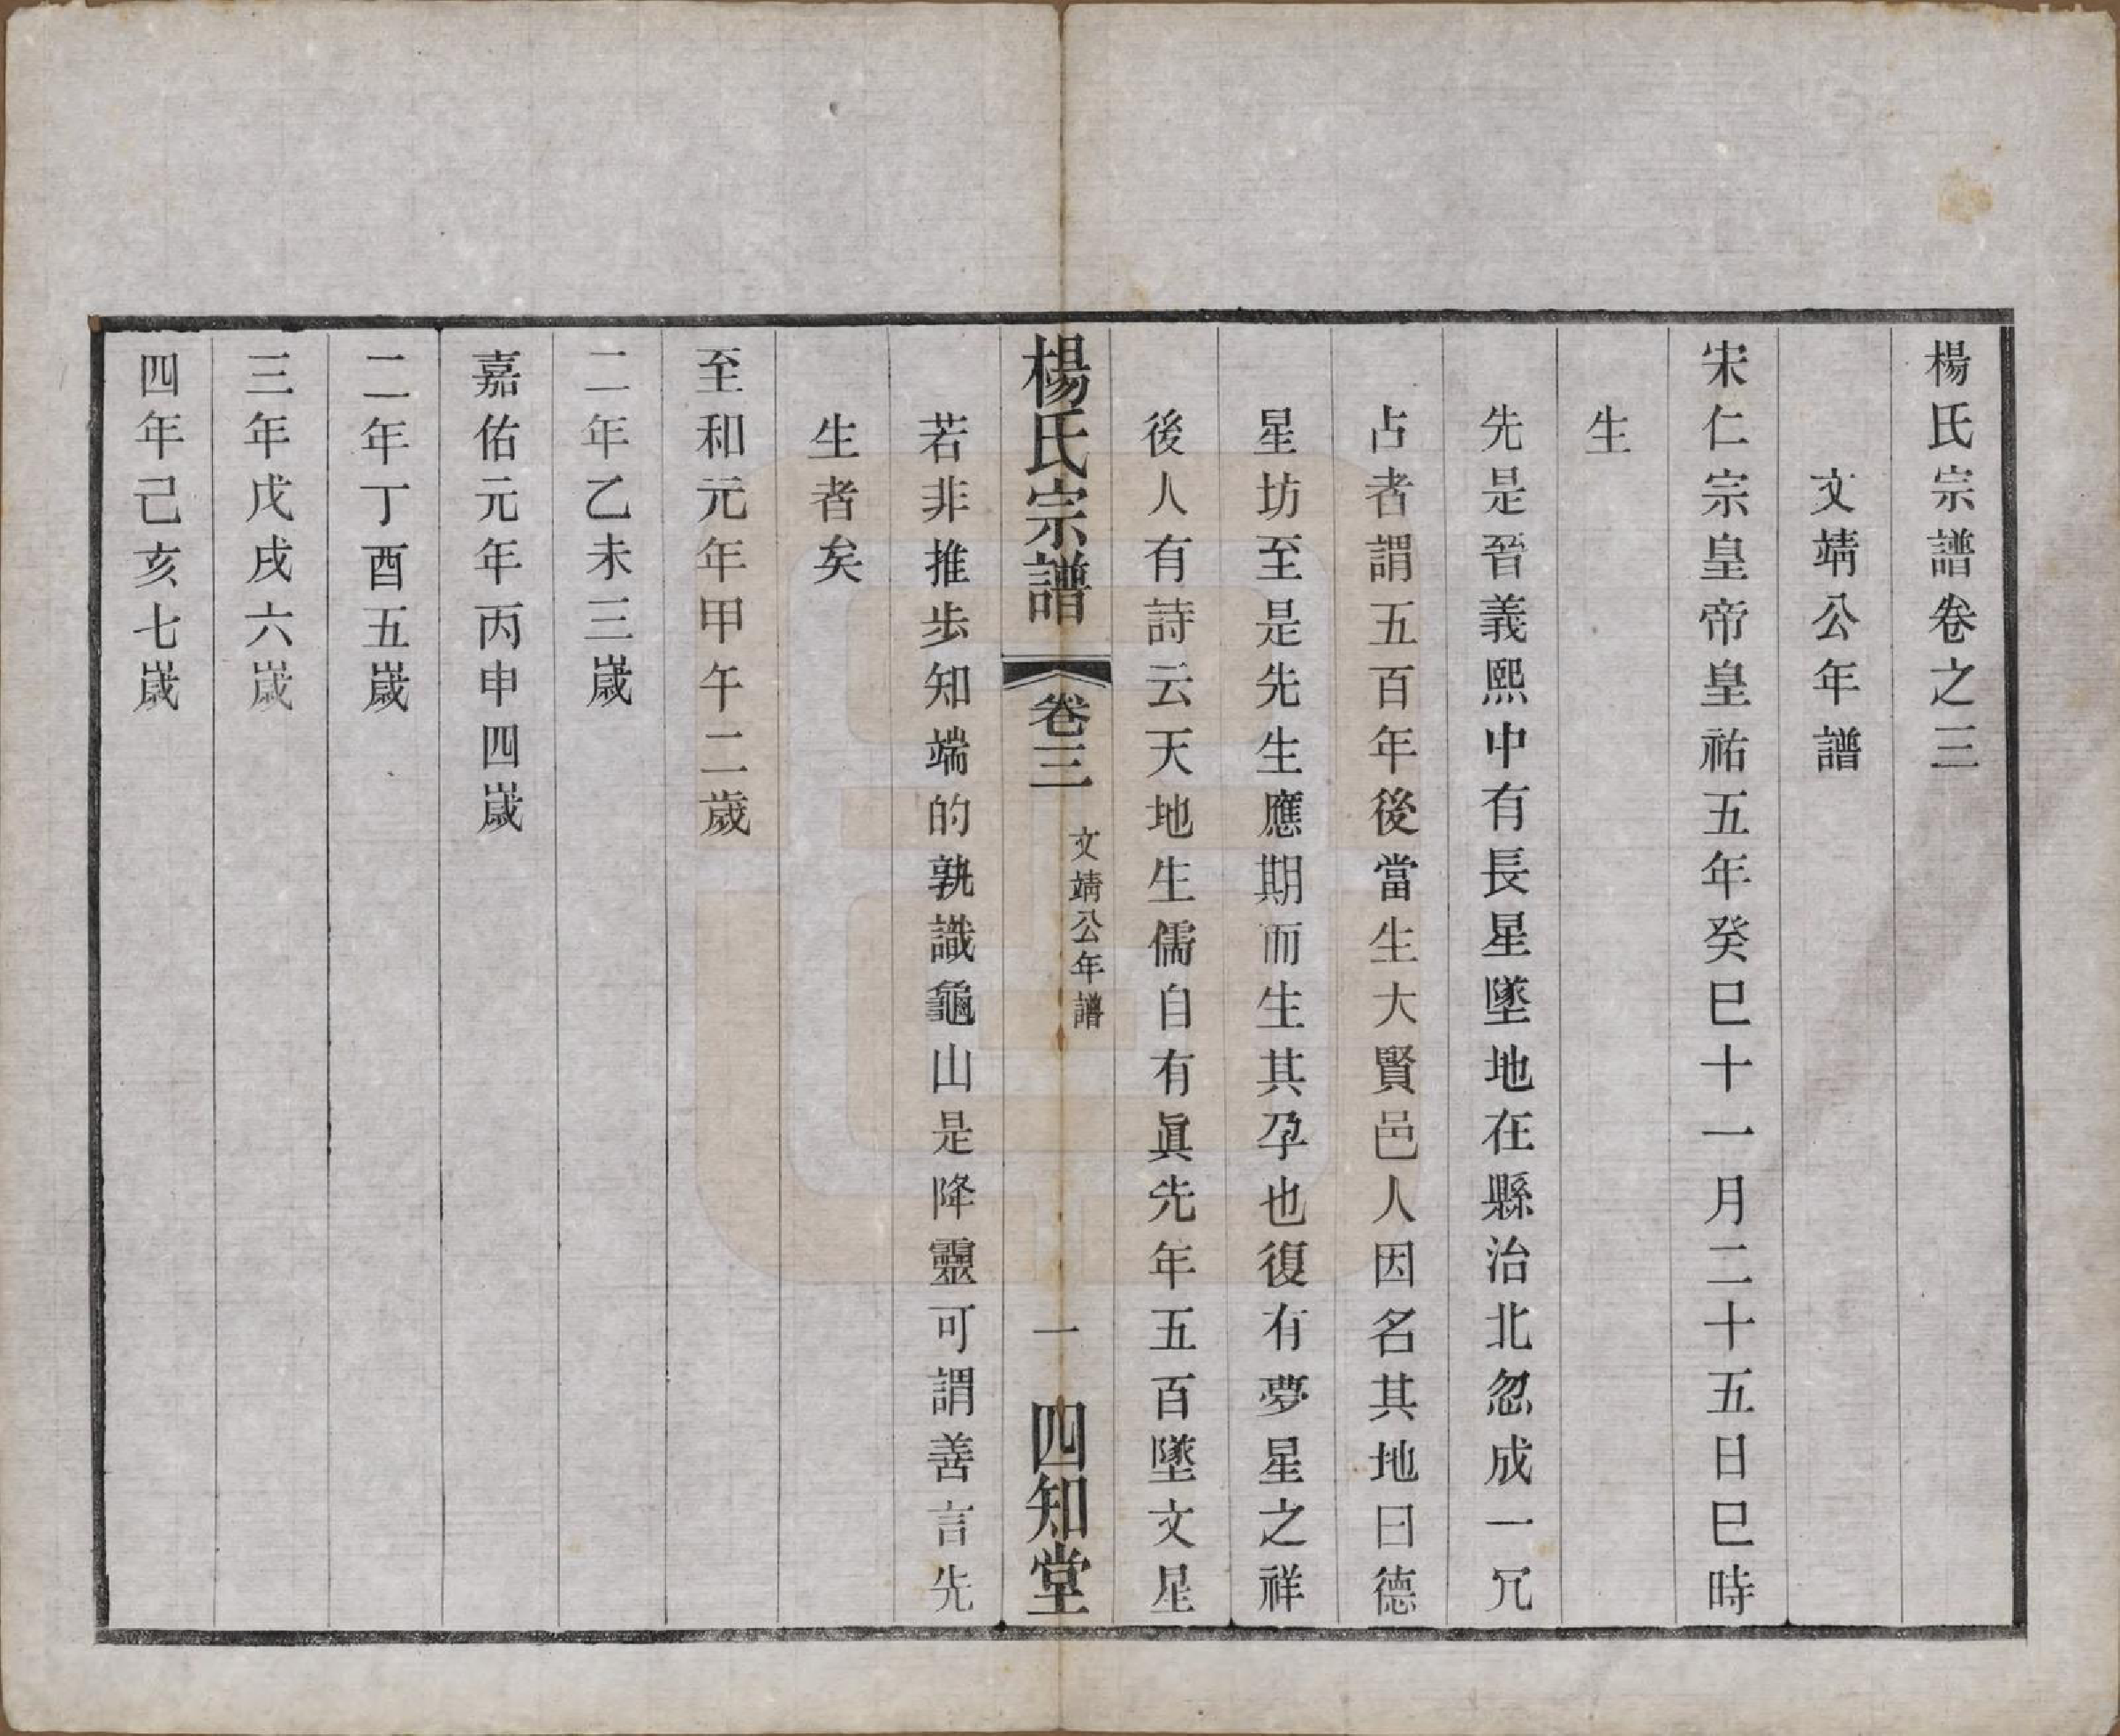 楊氏宗譜卷之三
文靖公年譜
宋仁宗皇帝皇祐五年癸巳十一月二十五日巳時
生
先是晉義熙中有長星墜地在縣治北忽成一冗
占者謂五百年後當生大賢邑人因名其地曰德
星坊至是先生應期而生其孕也復有夢星之祥
後人有詩云天地生儒自有眞先年五百墜文星
楊氏宗譜
卷三
文靖公年譜
一
四知堂
若非推步知端的孰識龜山是降靈可謂善言先
生者矣
至和元年甲午二歲
二年乙未三歲
嘉佑元年丙申四歲
二年丁酉五歲
三年戊戌六歲
四年己亥七歲